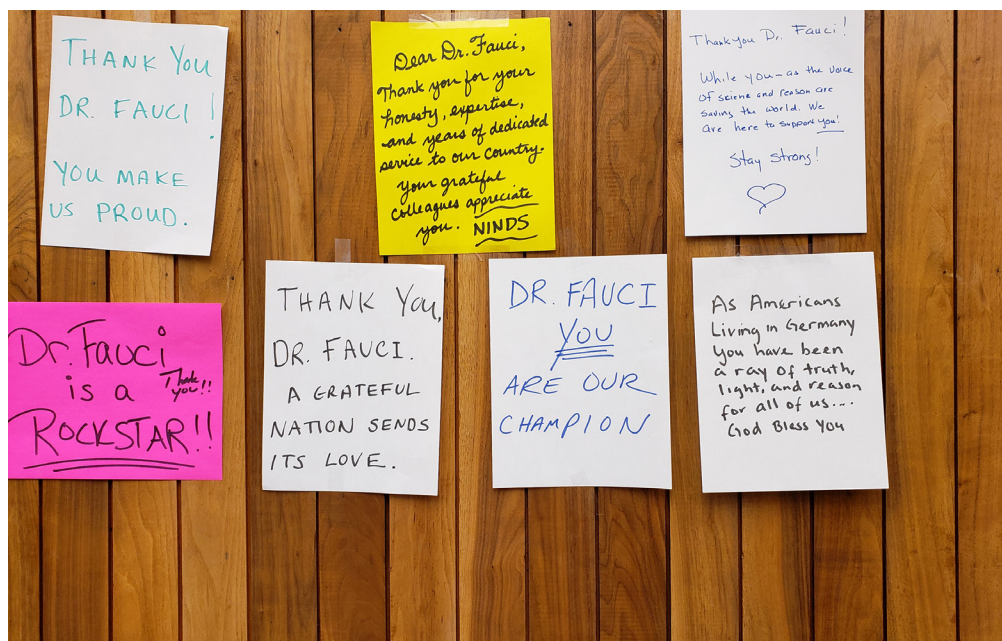 THANK YOU
DR. FAUCI!
YOU MAKE
US PROUD.
Dear Dr. Fauci,
Thank you for your
honesty, expertise,
and years of dedicated
service to our country.
Your grateful
colleagues appreciate
you. NINDS
Thank you Dr. Fauci!
While you - as the voice
of science and reason are
saving the world. We
are here to support you!
Stay Strong!
Dr. Fauci
is a Thank
you!!
ROCKSTAR!!
THANK YOU,
DR. FAUCI.
A GRATEFUL
NATION SENDS
ITS LOVE.
DR. FAUCI
YOU
ARE OUR
CHAMPION
As Americans
Living in Germany
You have been
a ray of truth,
light, and reason
for all of us....
God Bless You